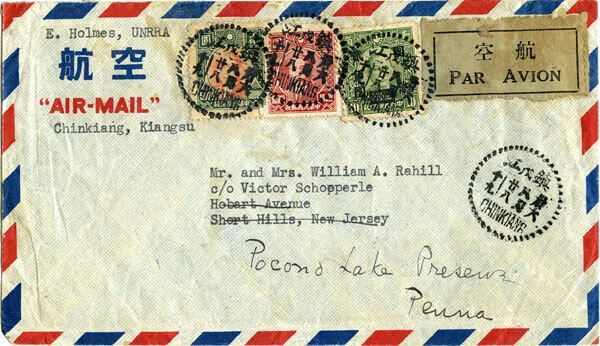 E. Holmes, UNRRA
航空
"AIR-MAIL"
Chinkiang, Kiangsu
CHINKIANG
CHINKIANG
航空
PAR AVION
Mr. and Mrs. William A. Rahill
c/o Victor Schopperle
Hobart Avenue
Short Hills, New Jersey
CHINKIANG
Pocono Lake Preserve
Penna